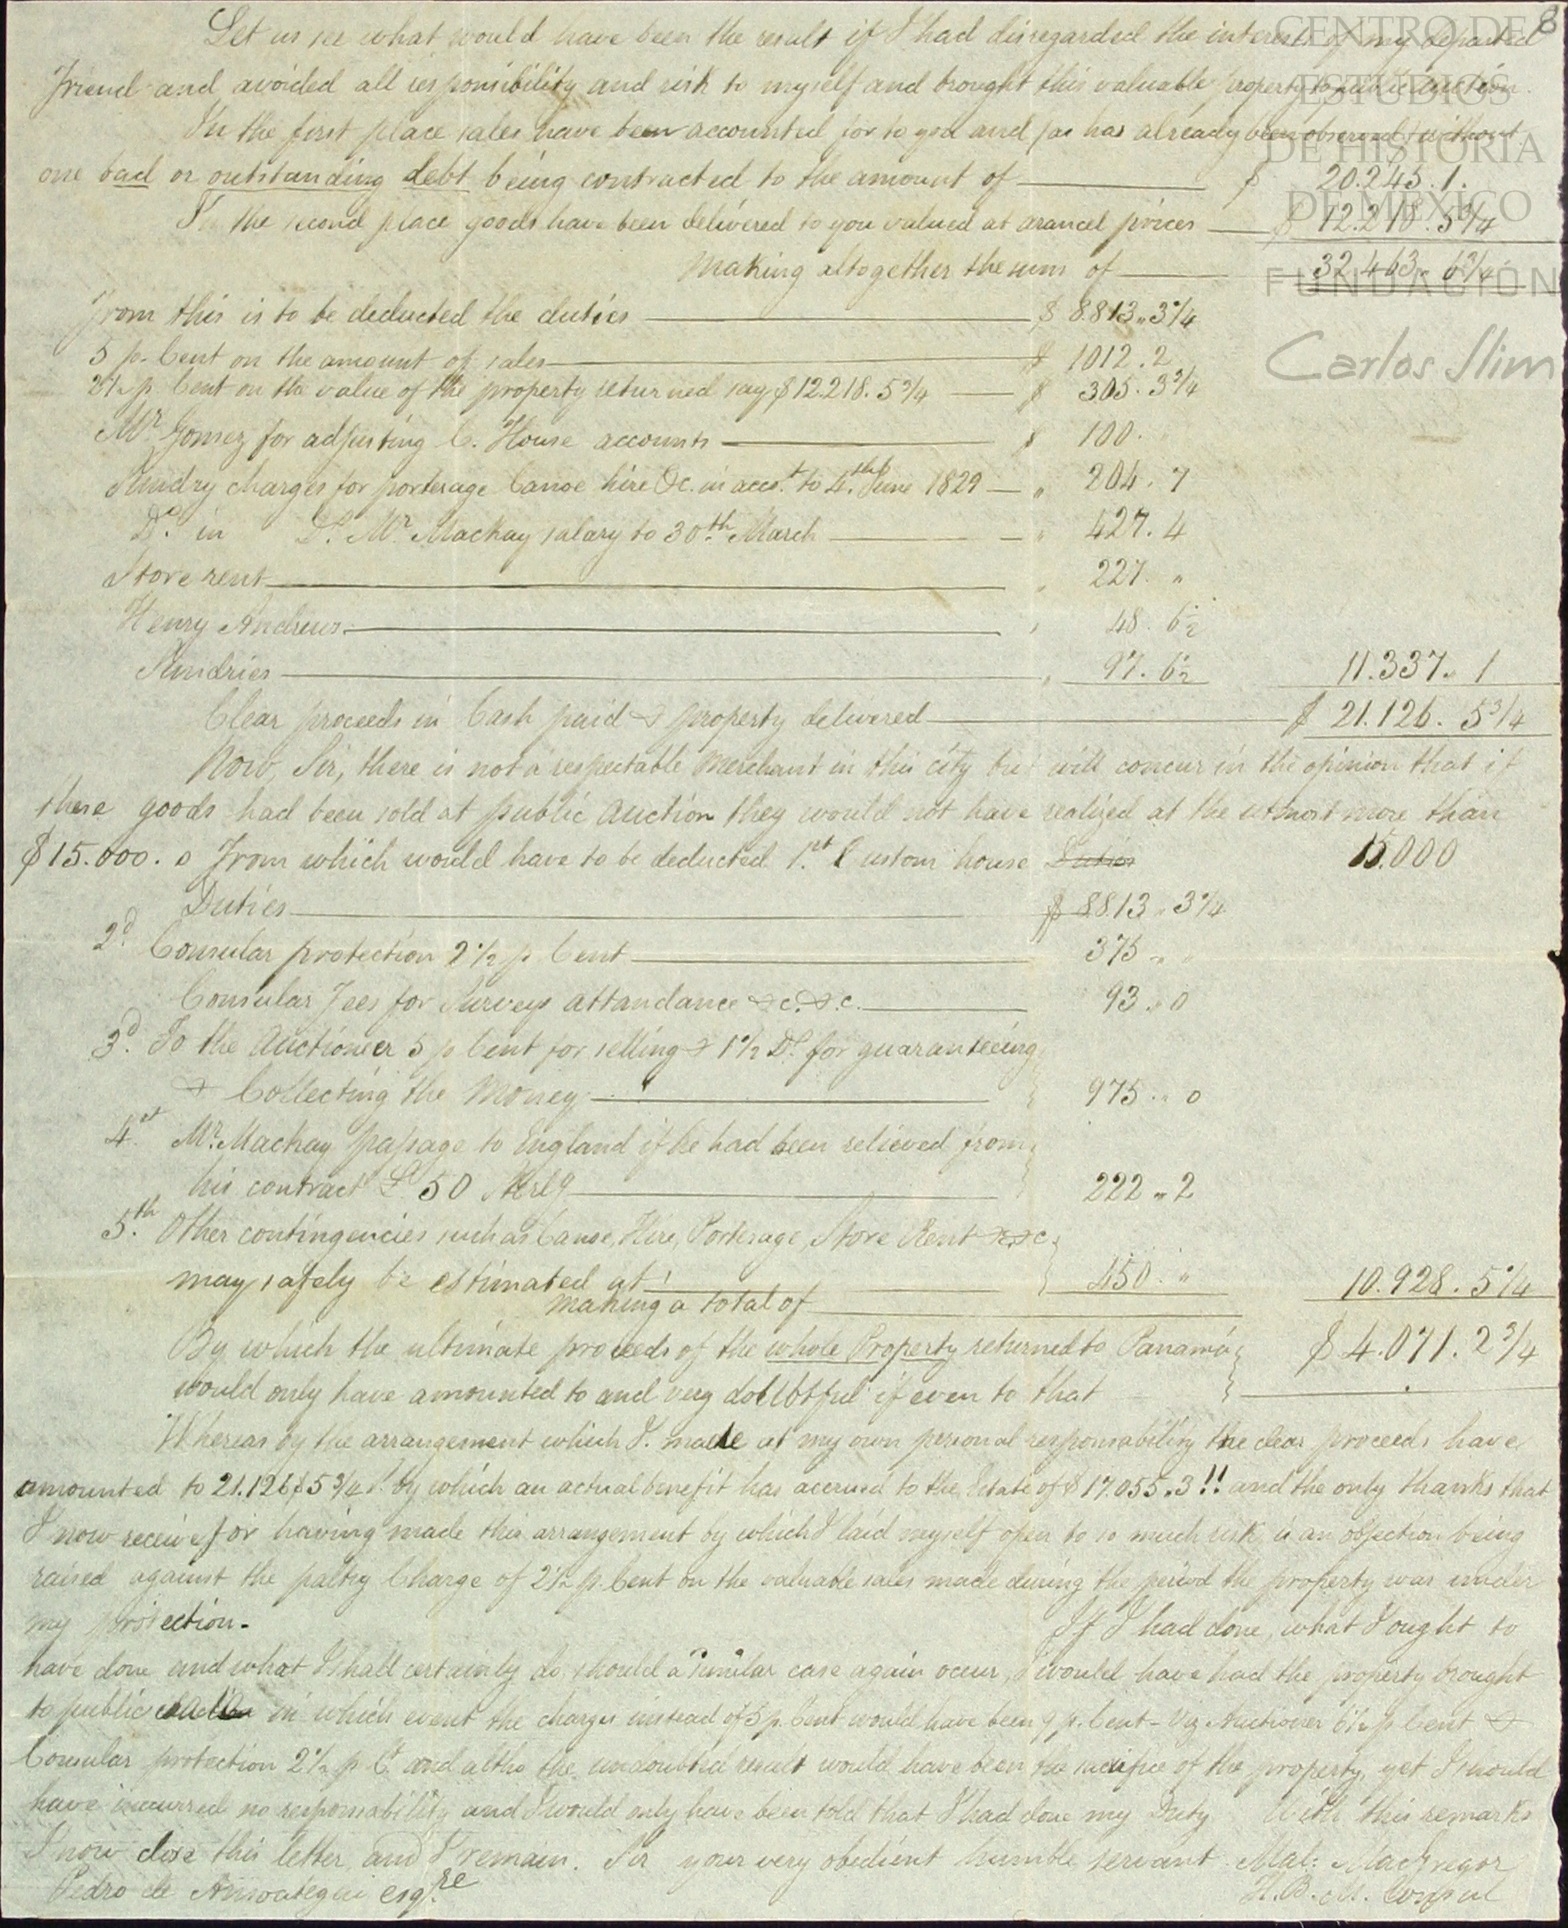 8
CENTRO DE
ESTUDIOS
DE HISTORIA
DE MÉXICO
FUNDACIÓN
Carlos Slim
Let us see what would have been the result if I had disregarded the interests of my departed
Friend and avoided all responsibility and risk to myself and brought this valuable property to public auction.
In the first place sales have been accounted for to you and (as has already been observed) without
one bad or outstanding debt being contracted to the amount of $ 20.245.1.
In the second place goods have been delivered to you valued at arancel prices $ 12.218.5¾
Making altogether the sum of 32.463.6¾
From this is to be deducted the duties $ 8813,,3¼
5 p. Cent on the amount of sales $ 1012.2
2½ p. Cent on the value of the property returned say $12.218.5¾ $ 305.3¾
Mr. Gomez for adjusting C. House accounts $ 100.
Sundry charges for porterage Canoe hire &c. in acco.t to 4.th June 1829 ,, 204.7
Do. in Do. Mr. Mackay salary to 30.th March ,, 427.4
Store rent ,, 227.,,
Henry Andrews ,, 48.6½
Sundries ,, 97.6½ 11.337.,1
Clear proceeds in Cash paid & property delivered $ 21.126.5¾
Now, Sir, there is not a respectable Merchant in this city but will concur in the opinion that if
these goods had been sold at public Auction they would not have realized at the utmost more than
$15.000.0 From which would have to be deducted 1.st Custom house Duties 15.000
Duties $ 8813.,3¼
2.d Consular protection 2½ p. Cent 375.,,
Consular Fees for Surveys attandance &c. &c. 93.,0
3.d To the Auctioneer 5 p Cent for selling & 1½ Do. for guaranteeing
& Collecting the Money 975.,,0
4.st Mr. Mackay passage to England if he had been relieved from
his contract £ 50 Sterlg 222.,2
5.th Other contingencies such as Canoe, Hire, Porterage, Store Rent &c &c.
may safely be estimated at 450.,, 10.928.5¼
Making a total of
By which the ultimate proceeds of the whole Property returned to Panamá $ 4.071.2¾
would only have amounted to and very doubtful if even to that
Whereas by the arrangement which I made at my own personal responsability the clear proceeds have
amounted to 21.126$5¾ by which an actual benefit has accrued to the Estate of $17.055.3!! and the only thanks that
I now receive for having made this arrangement by which I laid myself open to so much risk, is an objection being
raised against the paltry Charge of 2½ p. Cent on the valuable sales made during the period the property was under
my protection. If I had done, what I ought to
have done, and what I shall certainly do should a similar case again occur, I would have had the property brought
to public in which event the charges instead of 5 p. Cent would have been 9 p. Cent - Viz Auctioner 6½ p Cent &
Consular protection 2½ p Ct. and altho the undoubted result would have been the sacrifice of the property, yet I should
have incurred no responsability and I would only have been told that I had done my Duty With this remarks
I now close this letter, and I remain. Sir your very obedient humble servant Mal: MacGregor
Pedro de Ansoategui esqre H.B.M. Consul